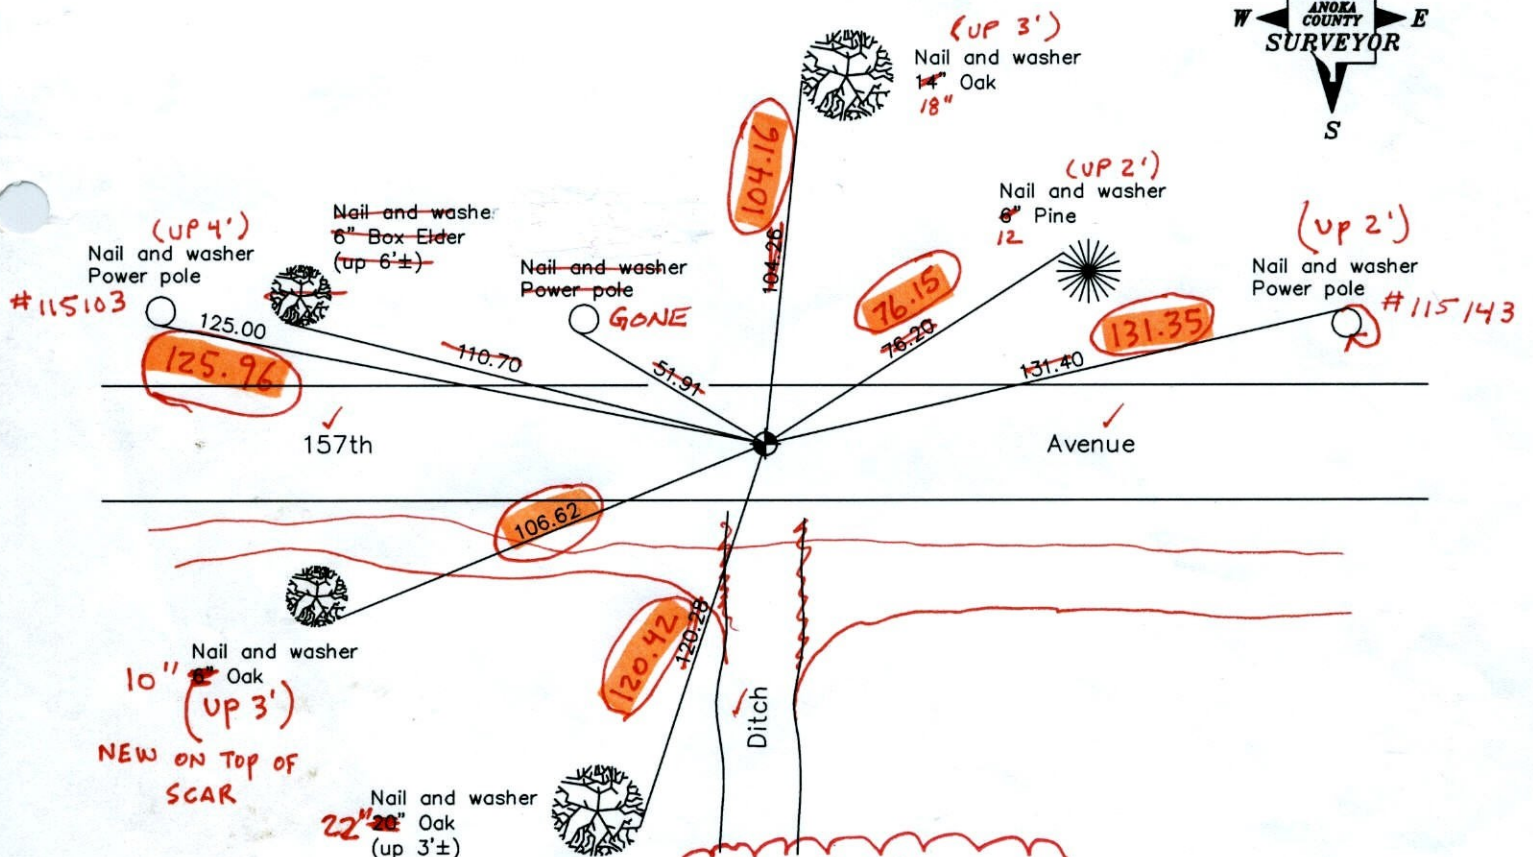 W
ANOKA
COUNTY
E
SURVEYOR
S
(UP 3')
Nail and washer
14" Oak
18"
104.16
104.26
(UP 2')
Nail and washer
6" Pine
12
76.15
76.20
(up 2')
Nail and washer
Power pole
#115143
131.35
131.40
(UP 4')
Nail and washer
Power pole
#115103
125.00
125.96
Nail and washer
6" Box Elder
(up 6'±)
110.70
Nail and washer
Power pole
GONE
51.91
157th
Avenue
106.62
Nail and washer
10" 6" Oak
(up 3')
NEW ON TOP OF
SCAR
120.42
120.28
Ditch
Nail and washer
22" 20" Oak
(up 3'±)